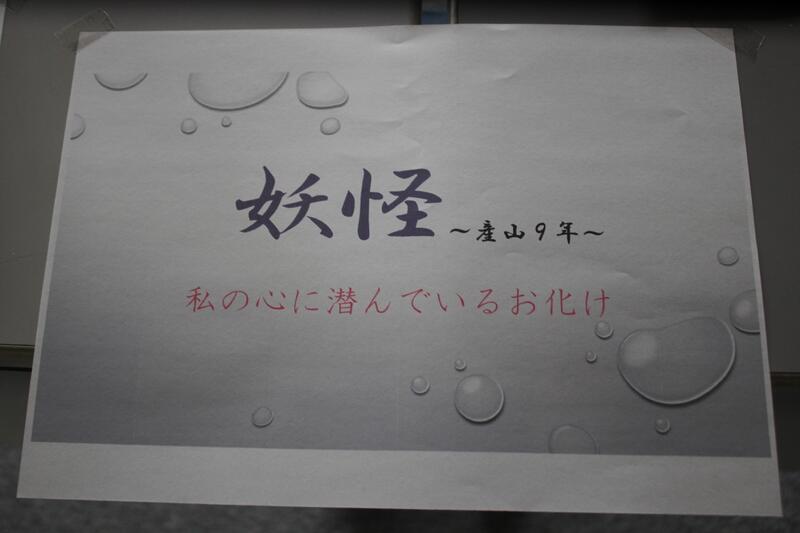 妖怪 ～産山９年～
私の心に潜んでいるお化け